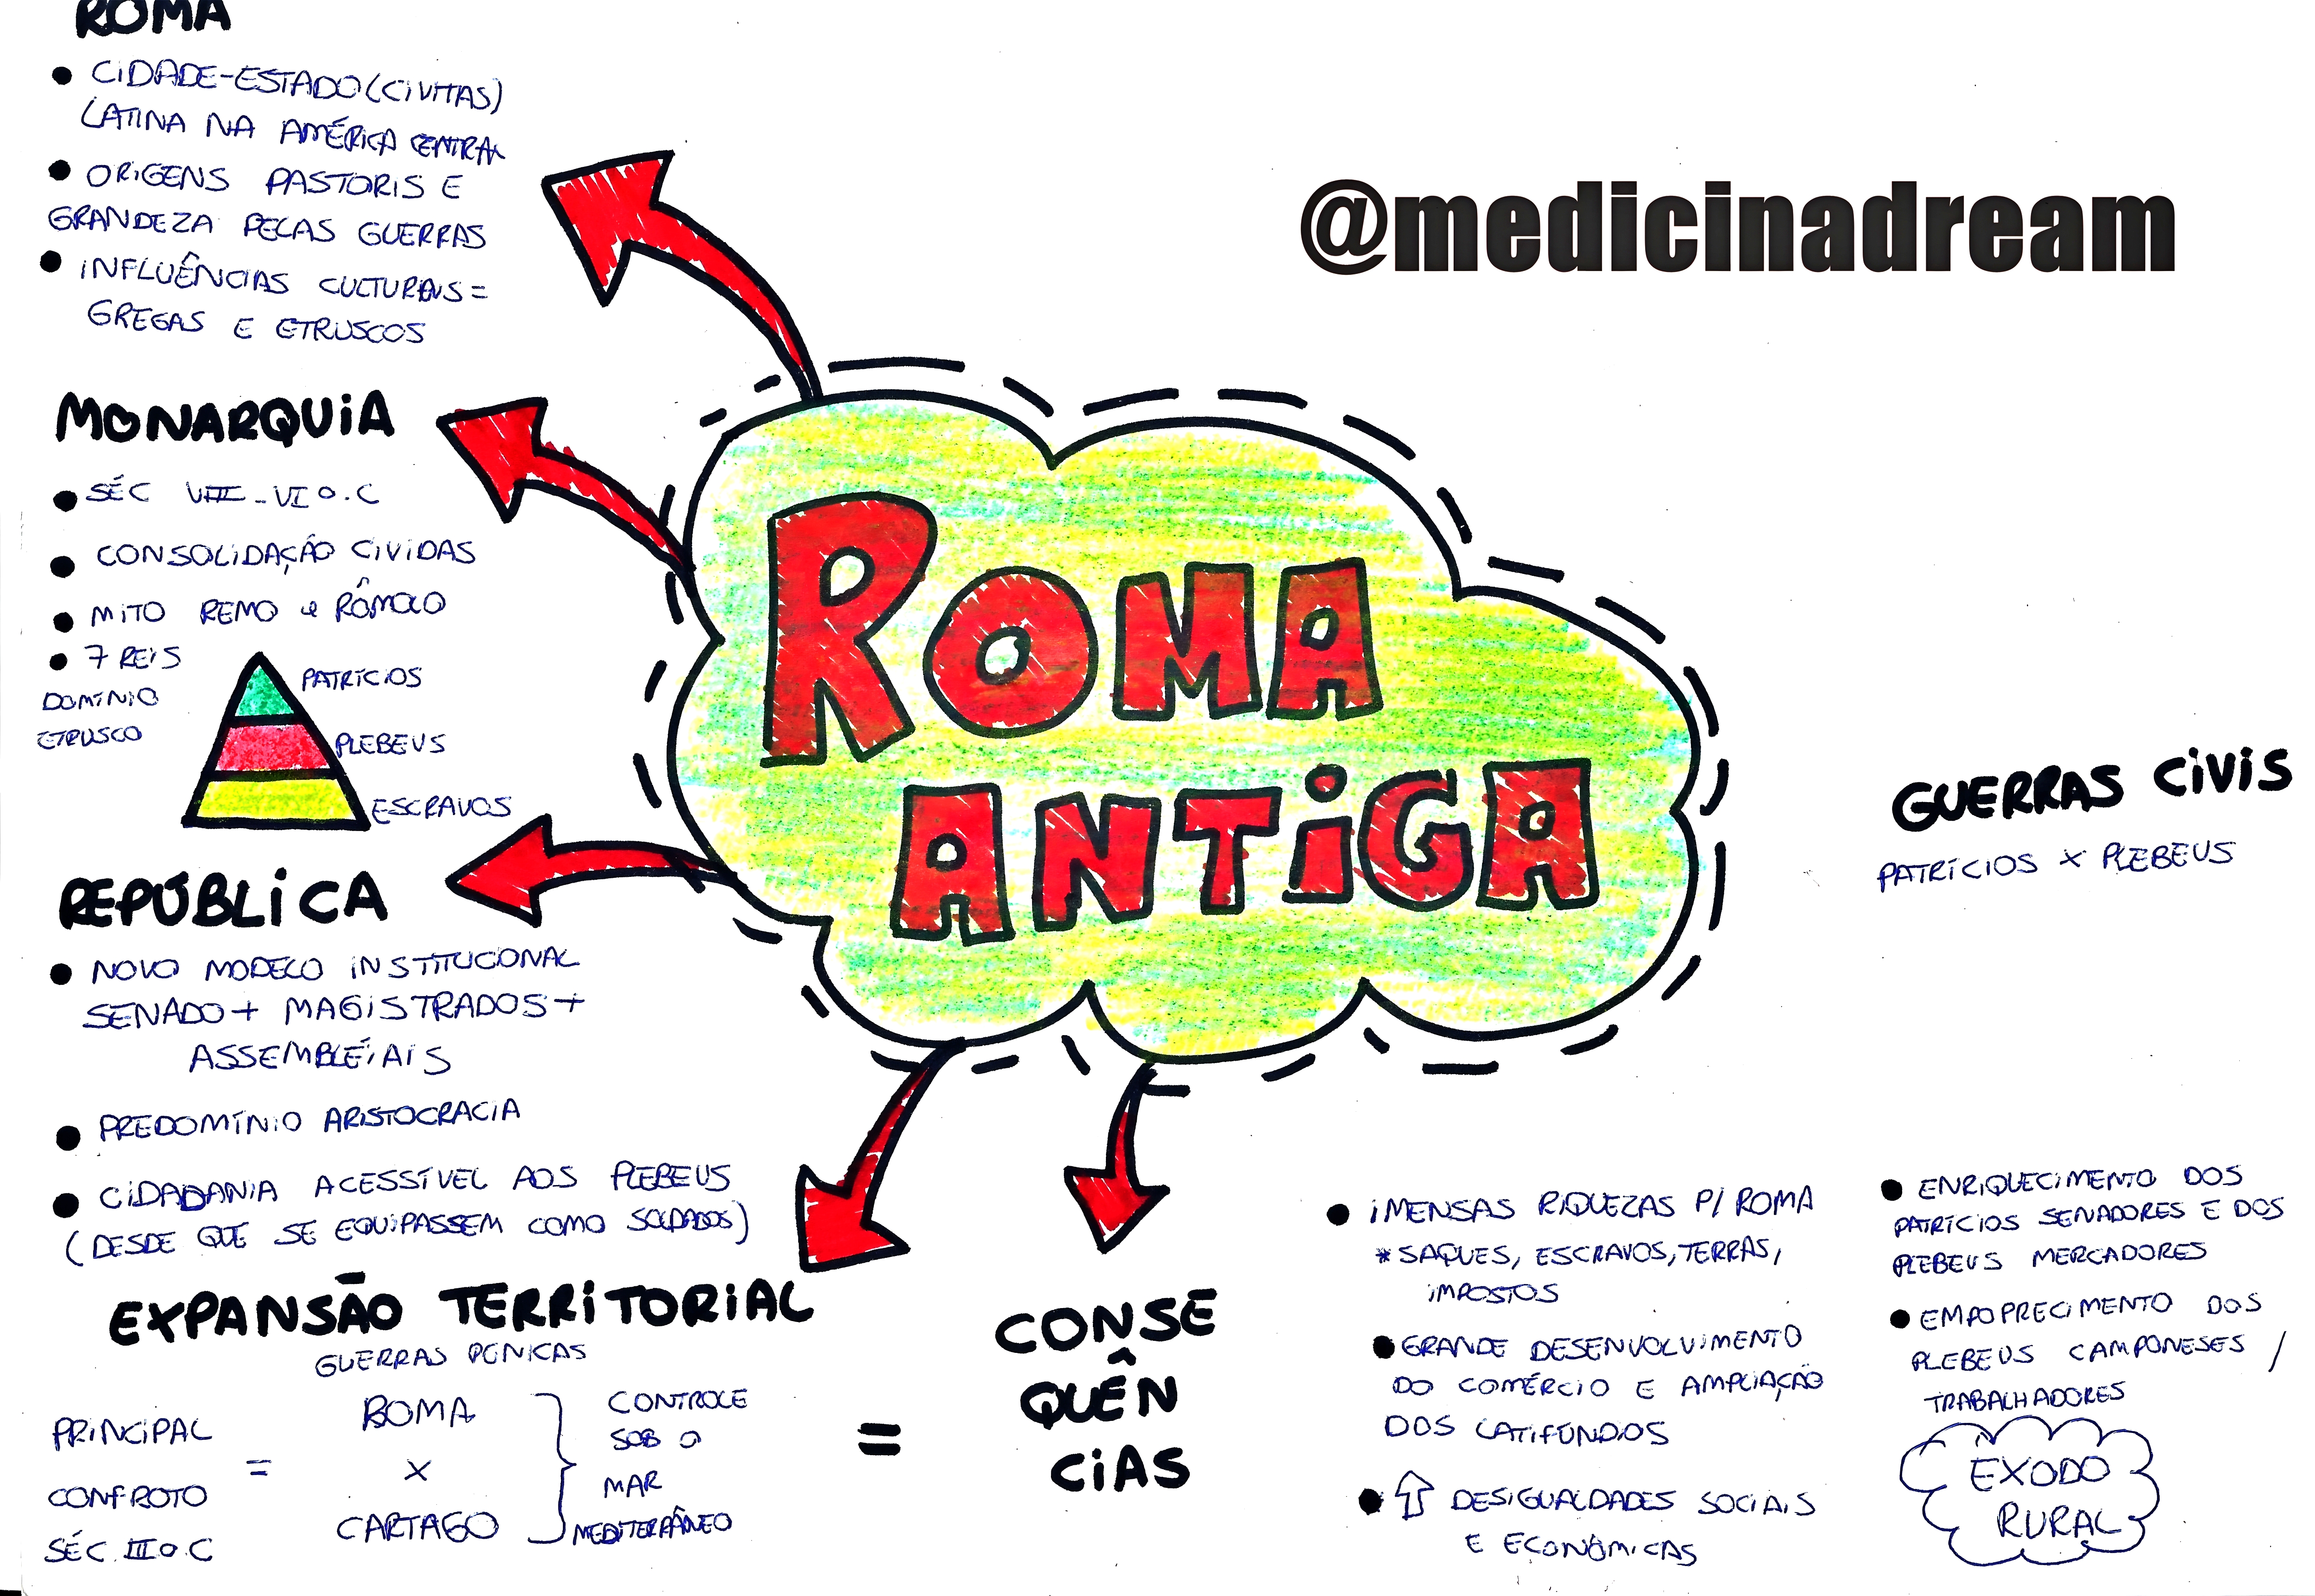 ROMA
• CIDADE-ESTADO (CIVITAS)
LATINA NA AMÉRICA CENTRAL
• ORIGENS PASTORIS E
GRANDEZA PELAS GUERRAS
• INFLUÊNCIAS CULTURAIS =
GREGAS E ETRUSCOS
MONARQUIA
• SÉC VIII - VI a.C
• CONSOLIDAÇÃO CIVIDAS
• MITO REMO e RÔMOLO
• 7 REIS
DOMÍNIO
ETRUSCO
PATRÍCIOS
PLEBEUS
ESCRAVOS
REPÚBLICA
• NOVO MODELO INSTITUCIONAL
SENADO + MAGISTRADOS +
ASSEMBLÉIAIS
• PREDOMÍNIO ARISTOCRACIA
• CIDADANIA ACESSÍVEL AOS PLEBEUS
(DESDE QUE SE EQUIPASSEM COMO SOLDADOS)
EXPANSÃO TERRITORIAL
GUERRAS PÚNICAS
PRINCIPAL
CONFROTO
SÉC. III a.C
=
ROMA
X
CARTAGO
CONTROLE
SOB O
MAR
MEDITERRÂNEO
=
CONSE
QUÊN
CIAS
ROMA
ANTIGA
@medicinadream
GUERRAS CIVIS
PATRÍCIOS X PLEBEUS
• IMENSAS RIQUEZAS P/ ROMA
* SAQUES, ESCRAVOS, TERRAS,
IMPOSTOS
• GRANDE DESENVOLVIMENTO
DO COMÉRCIO E AMPLIAÇÃO
DOS LATIFÚNDIOS
• ⇧ DESIGUALDADES SOCIAIS
E ECONÔMICAS
• ENRIQUECIMENTO DOS
PATRÍCIOS SENADORES E DOS
PLEBEUS MERCADORES
• EMPOPRECIMENTO DOS
PLEBEUS CAMPONESES /
TRABALHADORES
ÊXODO
RURAL